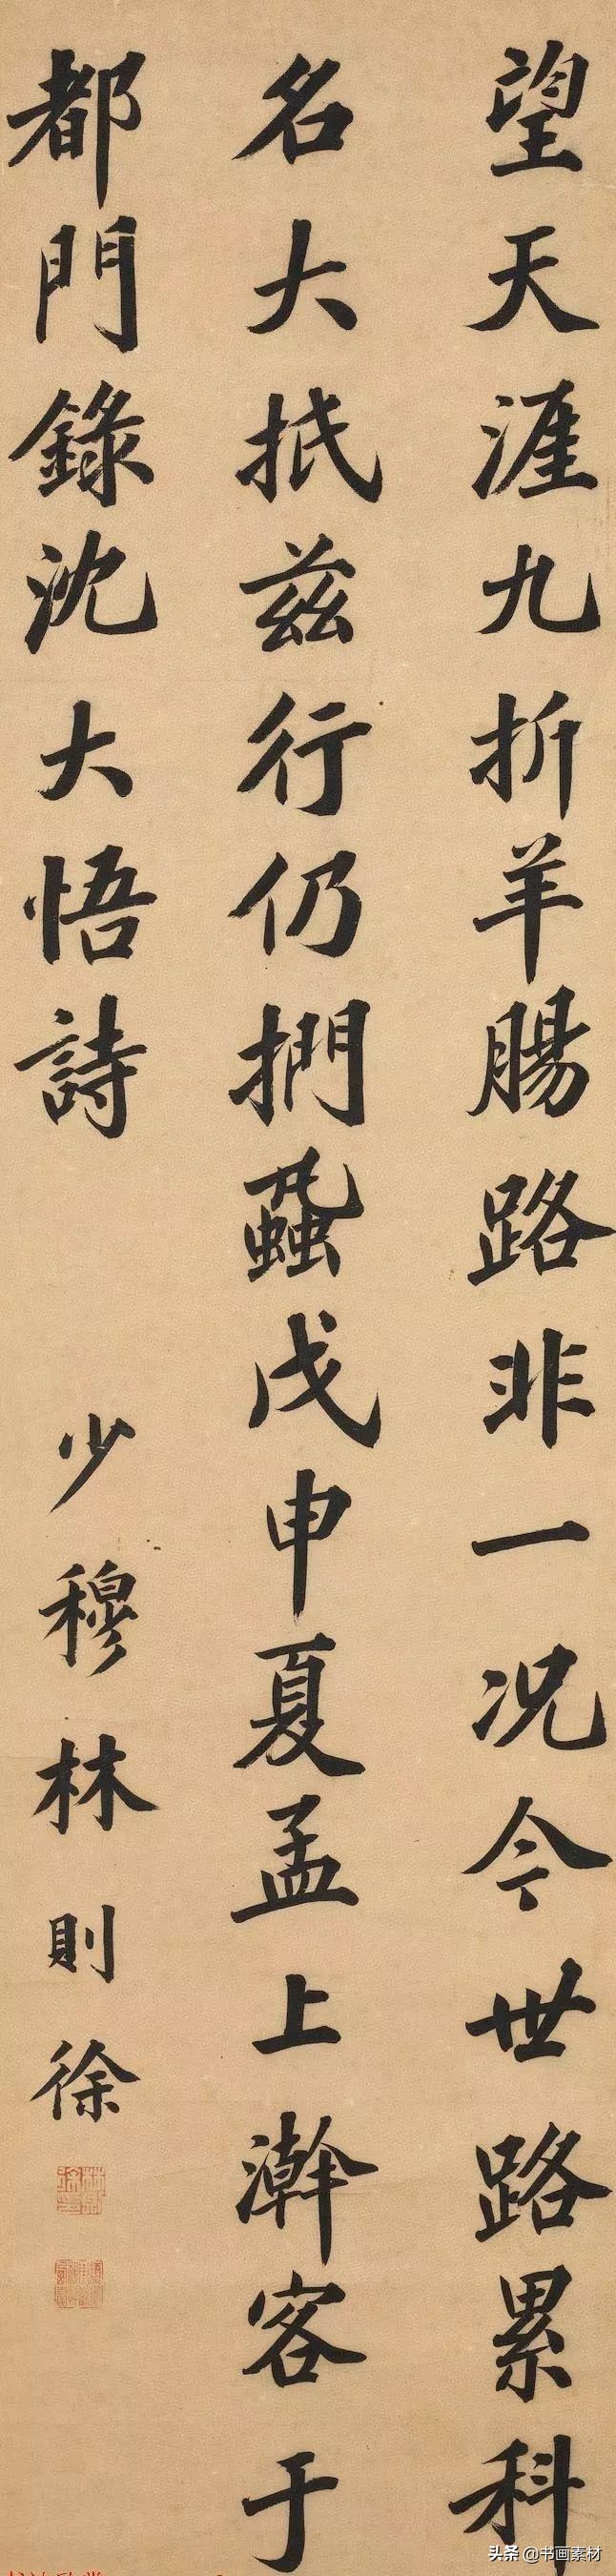 望天涯九折羊腸路非一况今世路累科
名大抵兹行仍捫蝨戊申夏孟上澣客于
都門錄沈大悟詩
少穆林則徐
头条 @书画素材